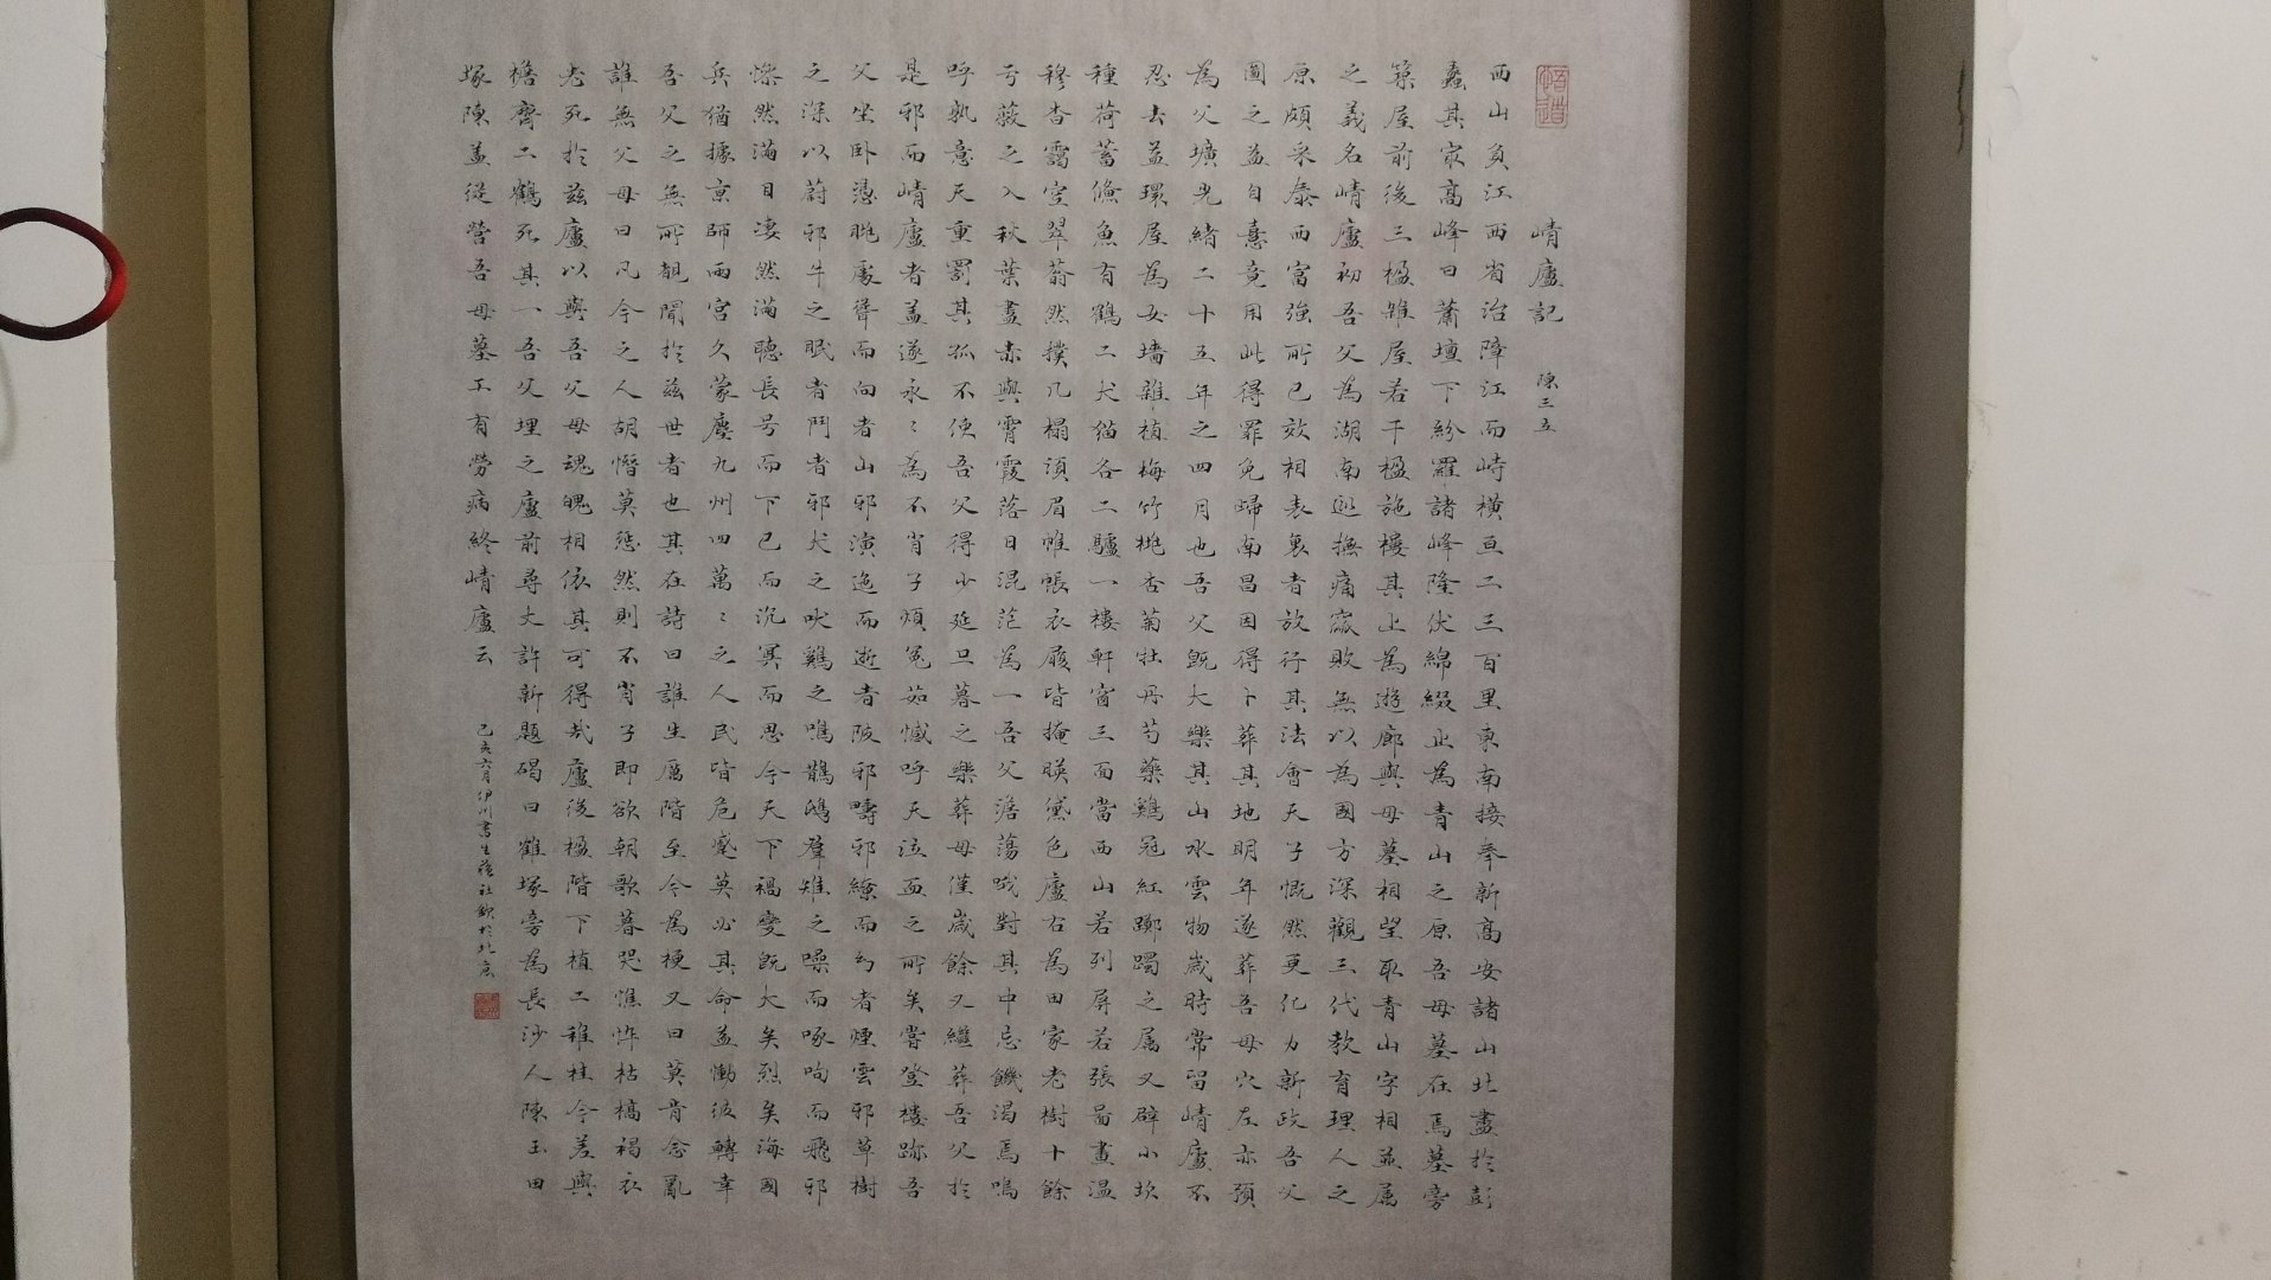 崝廬記 陳三立
西山負江西省治障江而峙橫亘二三百里東南接奉新高安諸山北盡於彭
蠡其家高峰曰蕭壇下紛羅諸峰隆伏綿綴止為青山之原吾母墓在焉墓旁
築屋前後三楹雜屋若干楹施樓其上為遊廊與母墓相望取青山字相並屬
之義名崝廬初吾父為湖南巡撫痛窳敗無以為國方深觀三代教育理人之
原頗采泰西富強所已效相表裏者放行其法會天子慨然更化力新政吾父
圖之益自憙竟用此得罪免歸南昌因得卜葬其地明年遂葬吾母穴左亦預
為父壙光緒二十五年之四月也吾父既大樂其山水雲物歲時常留崝廬不
忍去益環屋為女墻雜植梅竹桃杏菊牡丹芍藥雞冠紅躑躅之屬又辟小坎
種荷蓄儵魚有鶴二犬貓各二驢一樓軒窗三面當西山若列屏若張圖畫溫
穆杳靄空翠蓊然撲几榻須眉帷帳衣履皆掩映黛色廬右為田家老樹十餘
亏蔽之入秋葉盡赤與霄霞落日混茫為一吾父澹蕩哦對其中忘饑渴焉嗚
呼孰意天重罰其孤不使吾父得少延旦暮之樂葬母僅歲餘又繼葬吾父於
是邪而崝廬者蓋遂永〻為不肖子煩冤茹憾呼天泣血之所矣嘗登樓跡吾
父坐卧憑眺處聳而向者山邪演迤而逝者陂邪疇邪繚而幻者煙雲邪草樹
之深以蔚邪牛之眠者鬥者邪犬之吠雞之鳴鵲鴟群雉之噪而啄呴而飛邪
慘然滿目淒然滿聽長号而下已而沉冥而思今天下禍變既大矣烈矣海國
兵猶據京師兩宮久蒙塵九州四萬〻之人民皆危蹙莫必其命益慟彼轉幸
吾父之無所覩聞於茲世者也其在詩曰誰生厲階至今為梗又曰莫肯念亂
誰無父母曰凡今之人胡憯莫懲然則不肖子即欲朝歌暮哭憔悴枯槁褐衣
老死於茲廬以與吾父母魂魄相依其可得哉廬後楹階下植二稚桂今差與
檐齊二鶴死其一吾父埋之廬前尋丈許新題碣曰鶴塚旁為長沙人陳玉田
塚陳蓋從營吾母墓工有勞病終崝廬云
己亥六月伊川書生於北京